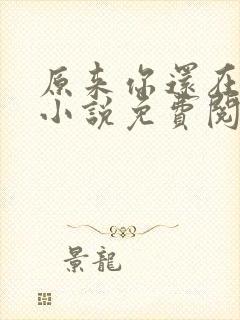 原来你還在
小說免費閱
景龍